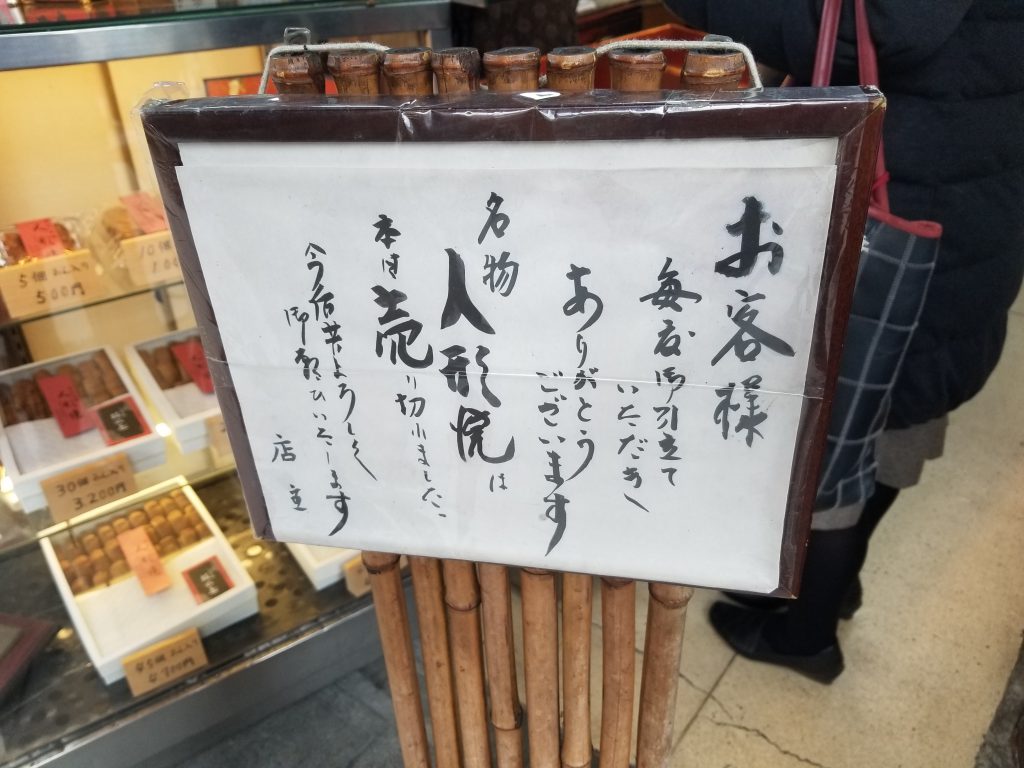 お客様
毎度御引立て
いただき
ありがとう
ございます
名物
人形焼は
本日売り切れました
今後共よろしく
御願いいたします
店主
5個入り
500円
30個入り
3200円
45個入り
4700円